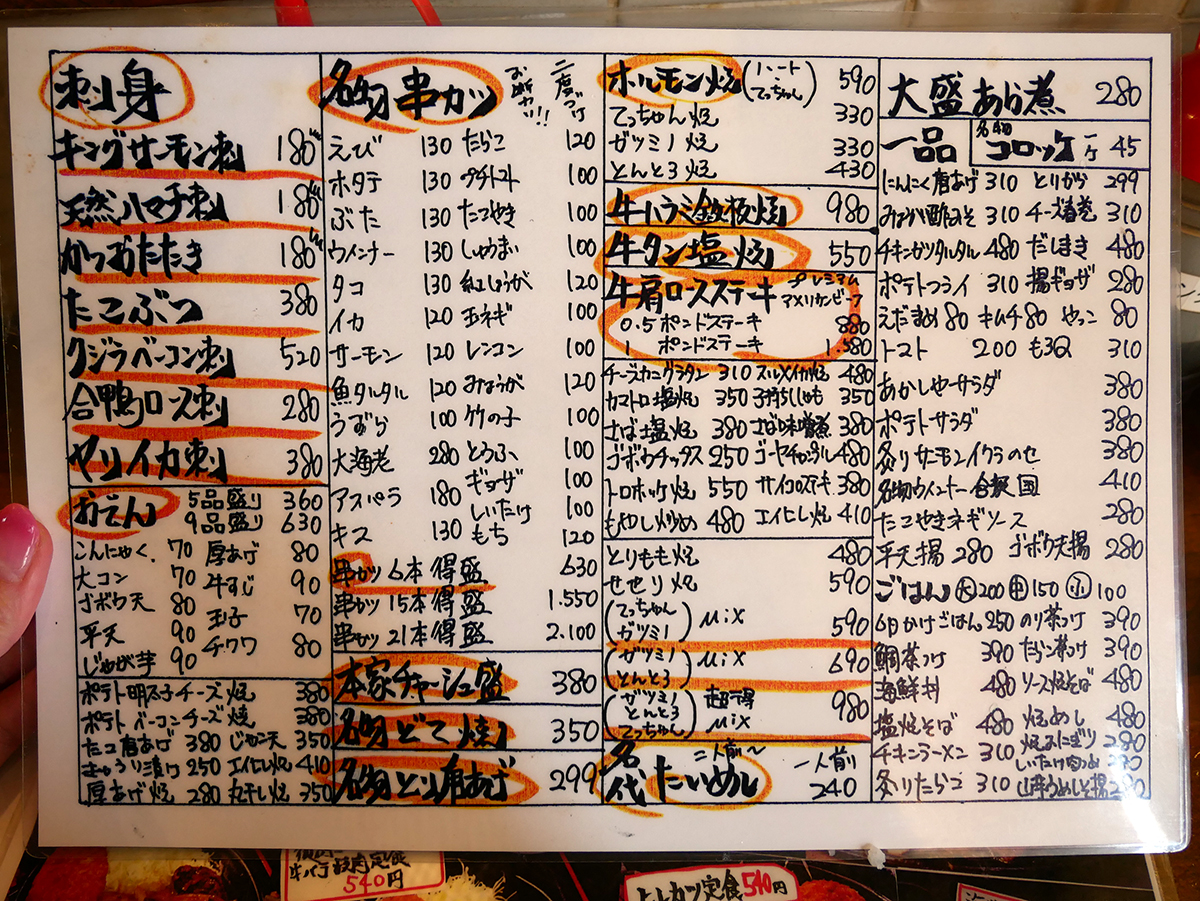 刺身
キングサーモン刺 180
天然ハマチ刺 180
かつおたたき 180
たこぶつ 380
クジラベーコン刺 520
合鴨ロース刺 280
ヤリイカ刺 380
おでん 5品盛り 360
9品盛り 630
こんにゃく 70 厚あげ 80
大コン 70 牛すじ 90
ゴボウ天 80 玉子 70
平天 90 チクワ 80
じゃが芋 90
ポテト明太子チーズ焼 380
ポテトベーコンチーズ焼 380
たこ唐あげ 380 じゃこ天 350
きゅうり漬け 250 エイヒレ焼 410
厚あげ焼 280 丸干し焼 350
名物串カツ 二度づけ
お断り!!
えび 130 たらこ 120
ホタテ 130 プチトマト 100
ぶた 130 たこやき 100
ウインナー 130 しゅうまい 100
タコ 130 紅しょうが 120
イカ 120 玉ネギ 100
サーモン 120 レンコン 100
魚タルタル 120 みょうが 120
うずら 100 竹の子 100
大海老 280 とうふ 100
アスパラ 180 ギョーザ 100
キス 130 しいたけ 100
もち 120
串カツ 6本得盛 630
串カツ 15本得盛 1.550
串カツ 21本得盛 2.100
本家チャーシュー盛 380
名物どて焼 350
名物とり唐あげ 299
ホルモン焼(ハート てっちゃん) 590
てっちゃん焼 330
ガツミノ焼 330
とんとろ焼 430
牛ハラミ鉄板焼 980
牛タン塩焼 550
牛肩ロースステーキ プレミアム
アメリカンビーフ
0.5ポンドステーキ 880
1 ポンドステーキ 1.580
チーズカニグラタン 310 スルメイカ焼 480
カマトロ塩焼 350 子持ちししゃも 350
さば塩焼 380 さば味噌煮 380
ゴボウチップス 250 ゴーヤチャンプル 480
トロホッケ焼 550 サイコロステーキ 380
もやし炒め 480 エイヒレ焼 410
とりもも焼 480
せせり焼 590
(てっちゃん ガツミノ) MIX 590
(ガツミノ とんとろ) MIX 690
(ガツミノ とんとろ てっちゃん) 超得 MIX 980
名代 たいめし 二人前〜
一人前 240
大盛あら煮 280
一品 名物 コロッケ 一ケ 45
にんにく唐あげ 310 とりから 299
酢みそ 310 チーズ春巻 310
チキンカツタルタル 480 だしまき 480
ポテトフライ 310 揚ギョーザ 280
えだまめ 80 キムチ 80 やっこ 80
トマト 200 もろQ 310
あかしやーサラダ 380
ポテトサラダ 380
炙りサーモンイクラのせ 380
名物ウインナー合衆国 410
たこやきネギソース 280
平天揚 280 ゴボウ天揚 280
ごはん 大 200 中 150 小 100
卵かけごはん 250 のり茶づけ 390
鯛茶づけ 390 たらこ茶づけ 390
海鮮丼 480 ソース焼そば 480
塩焼そば 480 焼めし 480
チキンラーメン 310 焼おにぎり 280
炙りたらこ 310
540円
ヒレカツ定食 540円